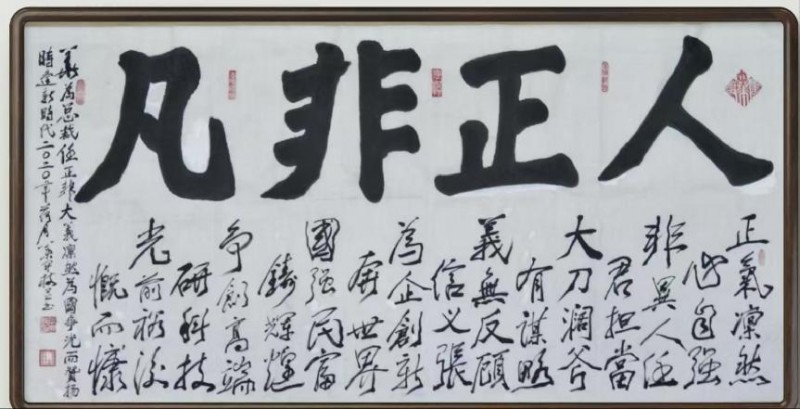 人正非凡
正氣凜然
必自强
非異人任
君担當
大刀濶斧
有謀略
義無反顧
信义張
為企創新
奔世界
國强民富
鑄輝煌
争創高端
研科技
光前裕後
慨而慷
華為总裁任正非大義凜然為國争光而贊揚
時逢新時代二〇二〇年